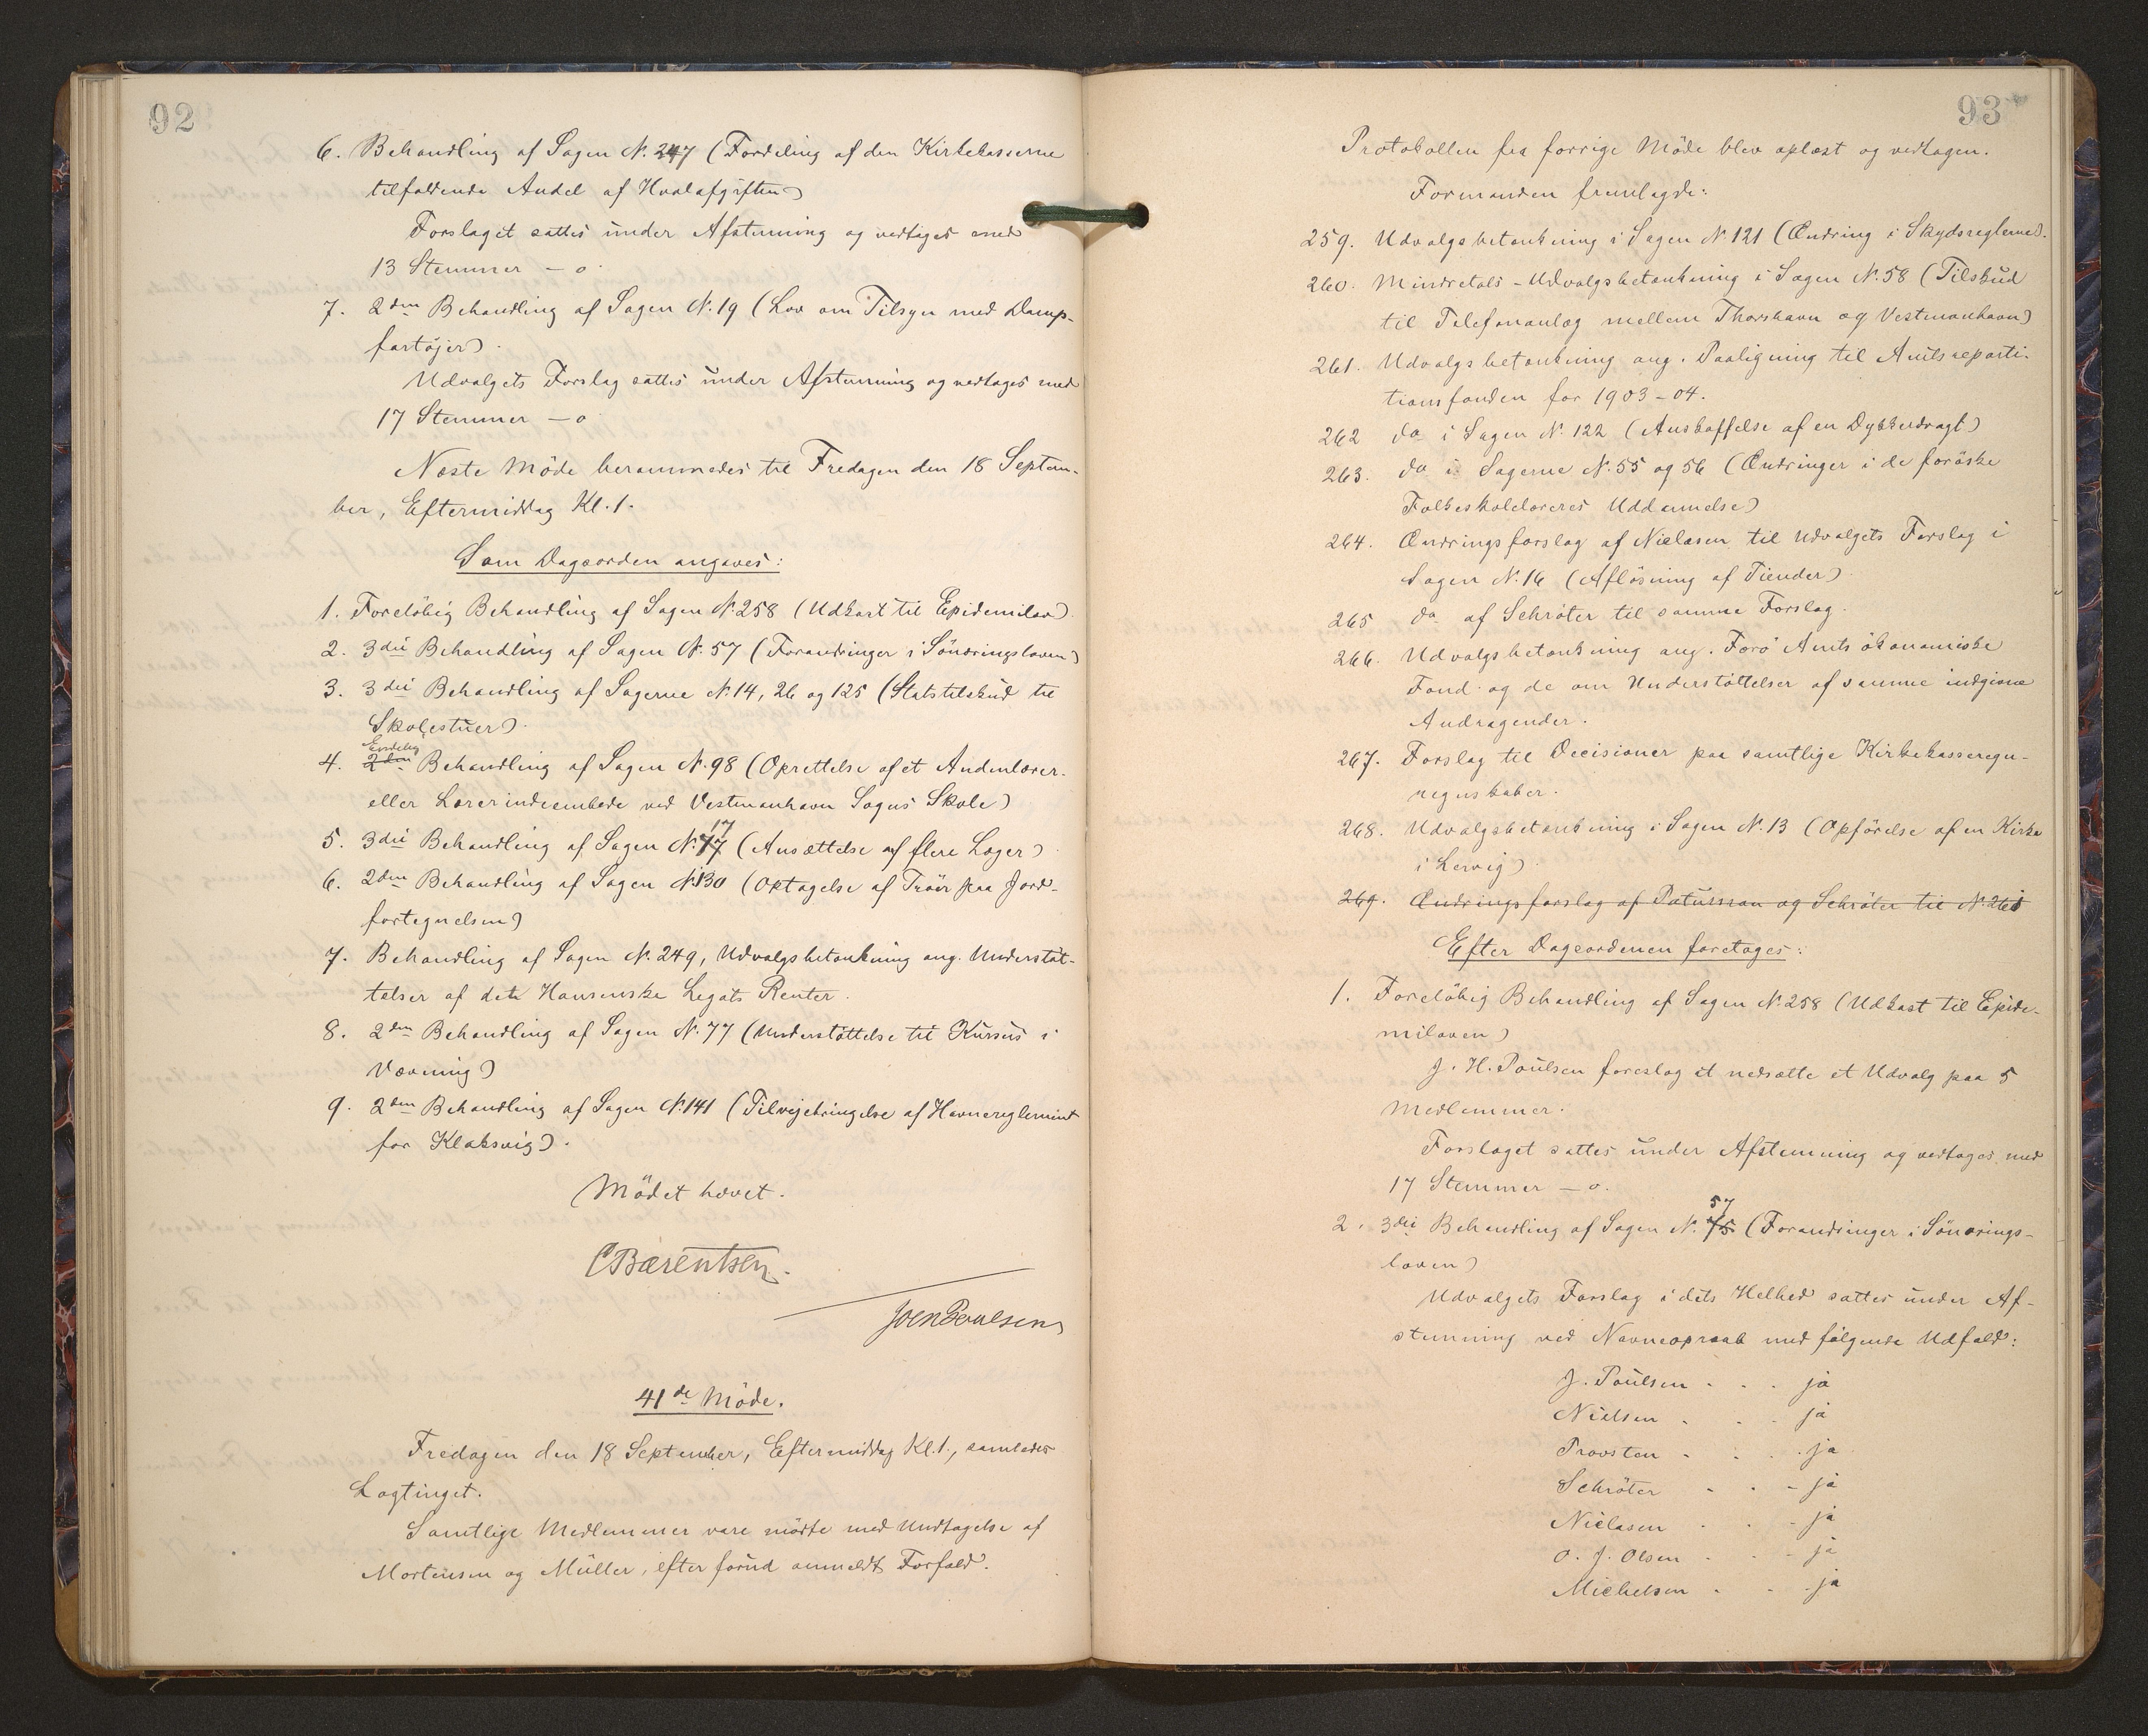 92
6. Behandling af Sagen N. 247 (Fordeling af den Kirkekasserne
tilfaldende Andel af Hvalafgiften)
Forslaget sattes under Afstemning og vedtoges med
13 Stemmer – o
7. 2den Behandling af Sagen N. 19 (Lov om Tilsyn med Damp-
fartöjer).
Udvalgets Forslag sattes under Afstemning og vedtoges med
17 Stemmer – o
Næste Möde berammedes til Fredagen den 18 Septem-
ber, Eftermiddag Kl. 1.
Som Dagsorden angaves:
1. Foreløbig Behandling af Sagen N. 258 (Udkast til Epidemilov)
2. 3die Behandling af Sagen N. 57 (Forandringer i Sönæringsloven)
3. 3die Behandling af Sagerne N. 14, 26 og 125 (Statstilskud til
Skolestuer).
Endelig
4. 2den Behandling af Sagen N. 98 (Oprettelse af et Andenlærer-
eller Lærerindeembede ved Vestmanhavn Sogns Skole)
17
5. 3die Behandling af Sagen N. 77 (Ansættelse af flere Læger)
6. 2den Behandling af Sagen N. 130 (Optagelse af Tröer paa Jord-
fortegnelsen)
7. Behandling af Sagen N. 249, Udvalgsbetænkning ang. Understöt-
telser af det Hansenske Legats Renter.
8. 2den Behandling af Sagen N. 77 (Understöttelse til Kursus i
Vævning)
9. 2den Behandling af Sagen N. 141 (Tilvejebringelse af Havnereglement
for Klaksvig).
Mödet hævet.
CBærentsen.
Joen Poulsen
41de Möde.
Fredagen den 18 September, Eftermiddag Kl. 1., samledes
Lagtinget.
Samtlige Medlemmer vare mödte med Undtagelse af
Mortensen og Müller, efter forud anmeldt Forfald.
93
Protokollen fra forrige Möde blev oplæst og vedtagen.
Formanden fremlagde:
259. Udvalgsbetænkning i Sagen N. 121 (Ændring i Skydsreglemt).
260. Mindretals-Udvalgsbetænkning i Sagen N. 58 (Tilskud
til Telefonanlæg mellem Thorshavn og Vestmanhavn)
261. Udvalgsbetænkning ang. Paaligning til Amtsreparti-
tionsfonden for 1903-04.
262 do i Sagen N. 122 (Anskaffelse af en Dykkerdragt)
263. do i Sagerne N. 55 og 56 (Ændringer i de færöske
Folkeskolelæreres Uddannelse)
264. Ændringsforslag af Nielasen til Udvalgets Forslag i
Sagen N. 16 (Aflösning af Tiender)
265 do af Schröter til samme Forslag.
266. Udvalgsbetænkning ang. Færö Amts ökonomiske
Fond og de om Understöttelser af samme indgivne
Andragender.
267. Forslag til Decisioner paa samtlige Kirkekasseregn-
regnskaber.
268. Udvalgsbetænkning i Sagen N. 13 (Opförelse af en Kirke
i Lervig)
269. Ændringsforslag af Patursson og Schröter til N. 261
Efter Dagsordenen foretoges:
1. Foreløbig Behandling af Sagen N. 258 (Udkast til Epide-
miloven)
J. H. Poulsen foreslog at nedsætte et Udvalg paa 5
Medlemmer.
Forslaget sattes under Afstemning og vedtoges med
17 Stemmer – o.
57
2. 3die Behandling af Sagen N. 75 (Forandringer i Sönærings-
loven)
Udvalgets Forslag i dets Helhed sattes under Af-
stemning ved Navneopraab med fölgende Udfald:
J. Poulsen . . . ja
Nielsen . . . ja
Provsten . . . ja
Schröter . . . ja
Nielasen . . . ja
O. J. Olsen . . . ja
Michelsen . . . ja